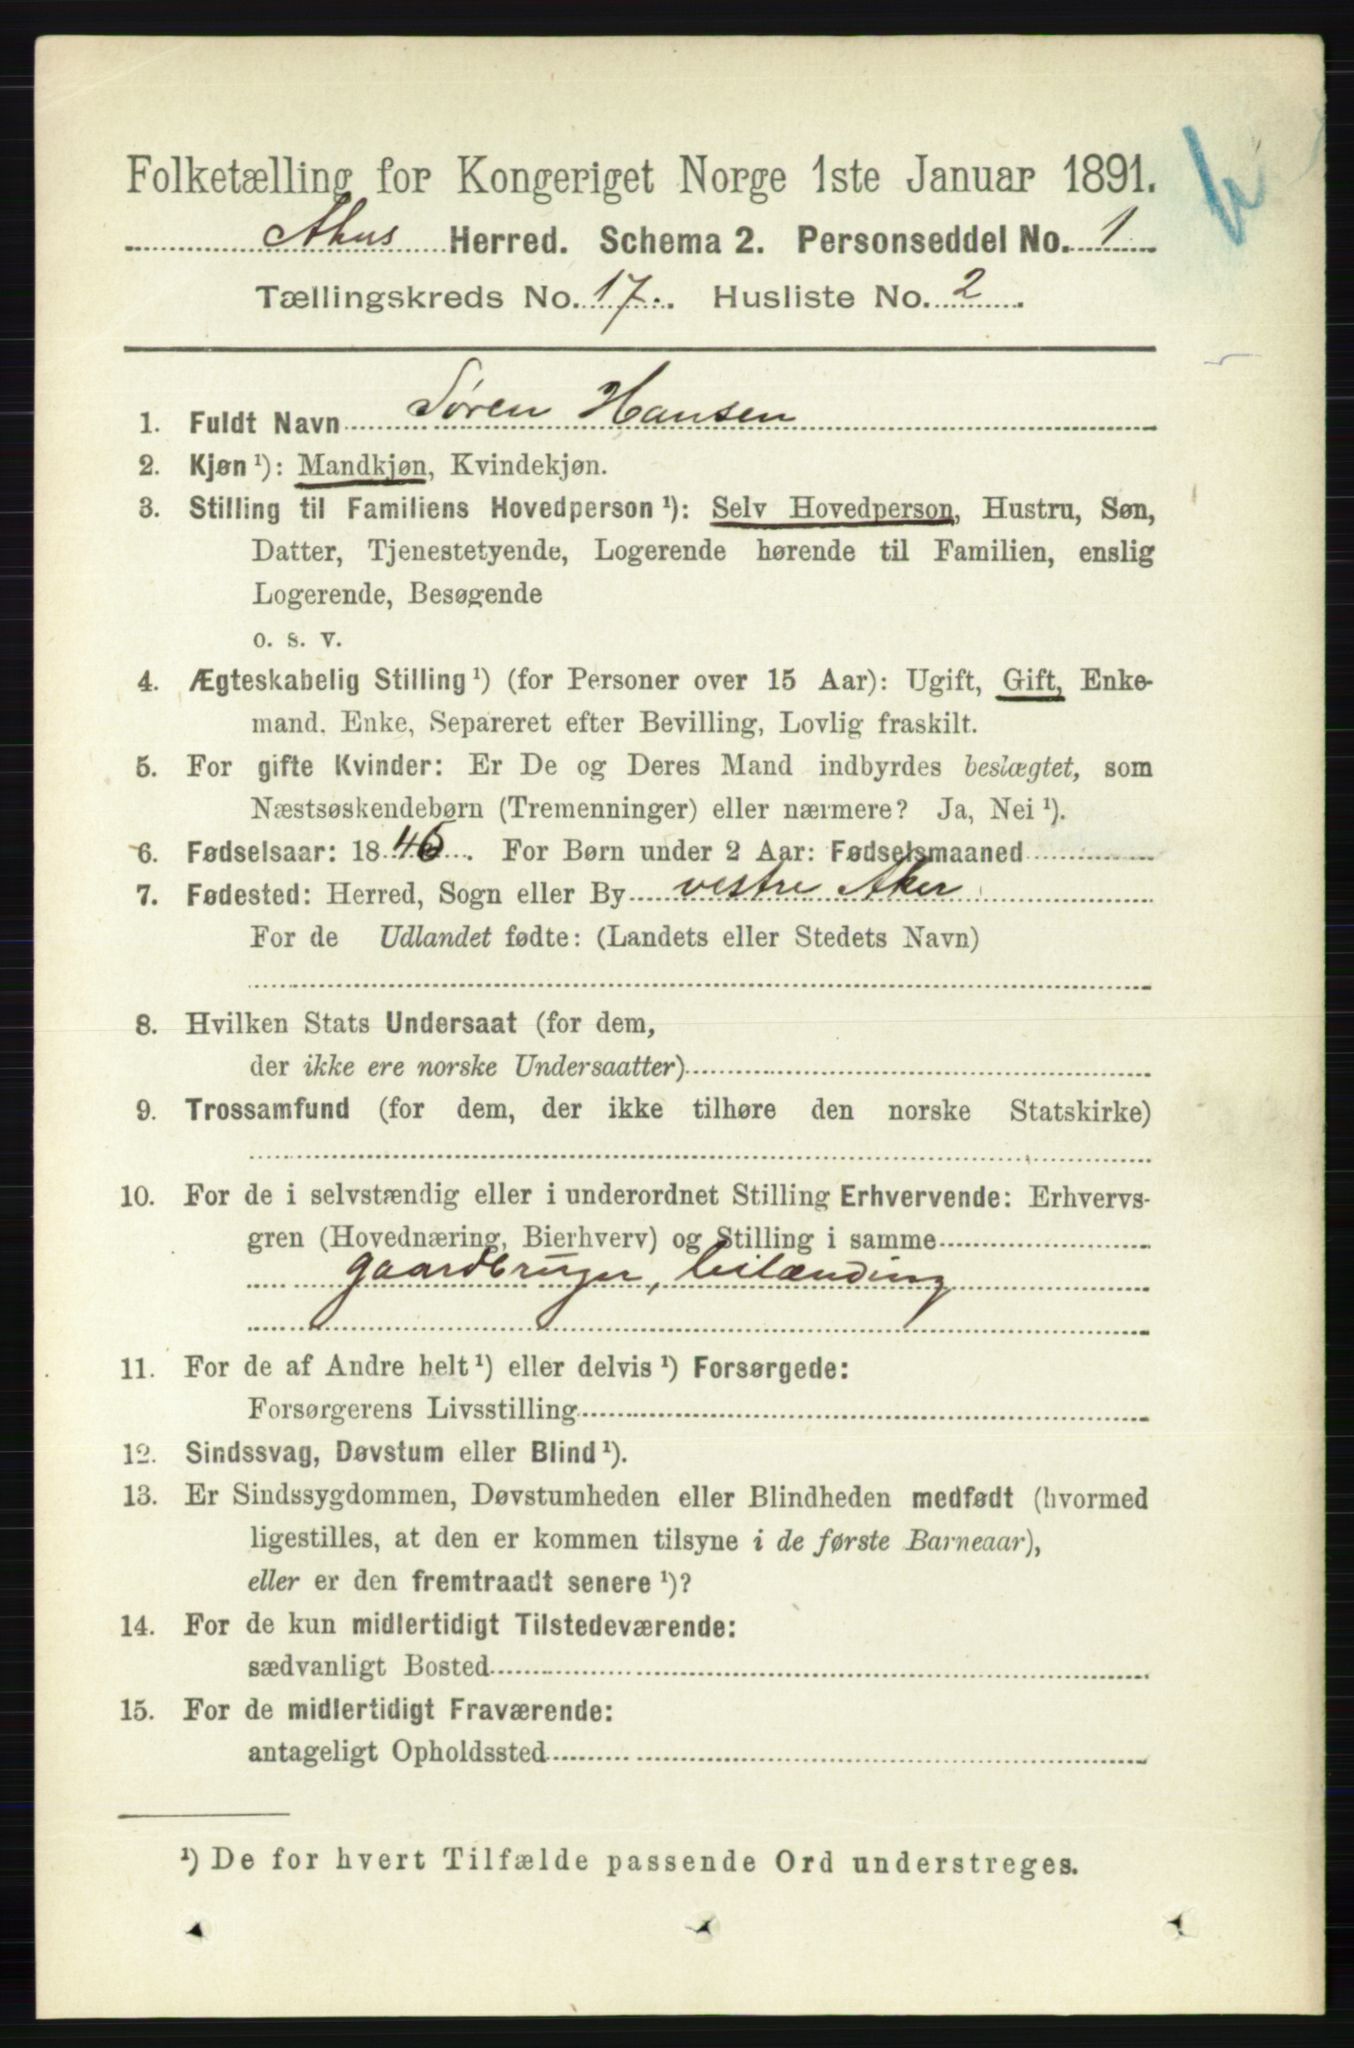 Folketælling for Kongeriget Norge 1ste Januar 1891.
Ahus Herred. Schema 2. Personseddel No. 1
Tællingskreds No. 17. Husliste No. 2
1. Fuldt Navn Søren Hansen
2. Kjøn ¹): Mandkjøn, Kvindekjøn.
3. Stilling til Familiens Hovedperson ¹): Selv Hovedperson, Hustru, Søn,
Datter, Tjenestetyende, Logerende hørende til Familien, enslig
Logerende, Besøgende
o. s. v.
4. Ægteskabelig Stilling ¹) (for Personer over 15 Aar): Ugift, Gift, Enke-
mand, Enke, Separeret efter Bevilling, Lovlig fraskilt.
5. For gifte Kvinder: Er De og Deres Mand indbyrdes beslægtet, som
Næstsøskendebørn (Tremenninger) eller nærmere? Ja, Nei ¹).
6. Fødselsaar: 1846. For Børn under 2 Aar: Fødselsmaaned
7. Fødested: Herred, Sogn eller By vestre Aker
For de Udlandet fødte: (Landets eller Stedets Navn)
8. Hvilken Stats Undersaat (for dem,
der ikke ere norske Undersaatter)
9. Trossamfund (for dem, der ikke tilhøre den norske Statskirke)
10. For de i selvstændig eller i underordnet Stilling Erhvervende: Erhvervs-
gren (Hovednæring, Bierhverv) og Stilling i samme
gaardbruger, leilænding
11. For de af Andre helt ¹) eller delvis ¹) Forsørgede:
Forsørgerens Livsstilling
12. Sindssvag, Døvstum eller Blind ¹).
13. Er Sindssygdommen, Døvstumheden eller Blindheden medfødt (hvormed
ligestilles, at den er kommen tilsyne i de første Barneaar),
eller er den fremtraadt senere ¹)?
14. For de kun midlertidigt Tilstedeværende:
sædvanligt Bosted
15. For de midlertidigt Fraværende:
antageligt Opholdssted
¹) De for hvert Tilfælde passende Ord understreges.